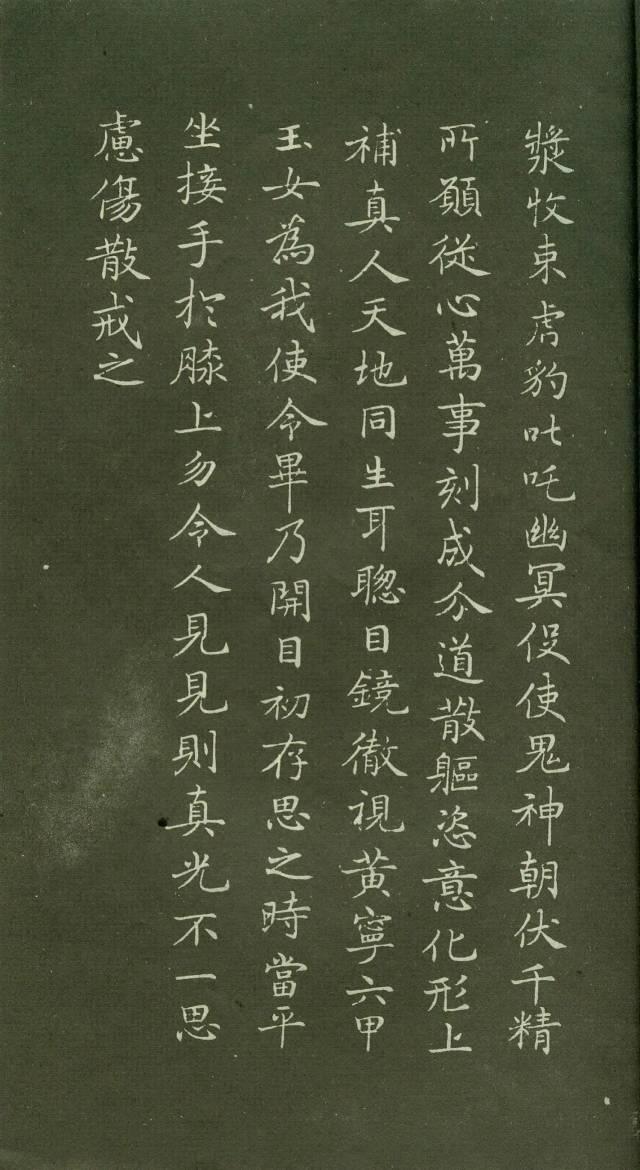 漿收束虎豹叱吒幽冥伇使鬼神朝伏千精
所願從心萬事剋成分道散軀恣意化形上
補真人天地同生耳聦目鏡徹視黃寧六甲
玉女為我使令畢乃開目初存思之時當平
坐接手於膝上勿令人見見則真光不一思
慮傷散戒之